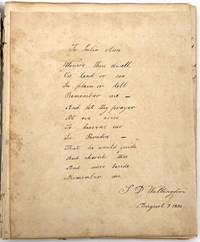 To Julia Ann
Where thou dwell
On land or sea
In place or dell
Remember me –
And let thy prayer
At eve arise
To heaven
In Paradise –
That he would guide
And cherish thee
And more beside
Remember me
S. D. Withington
August 7